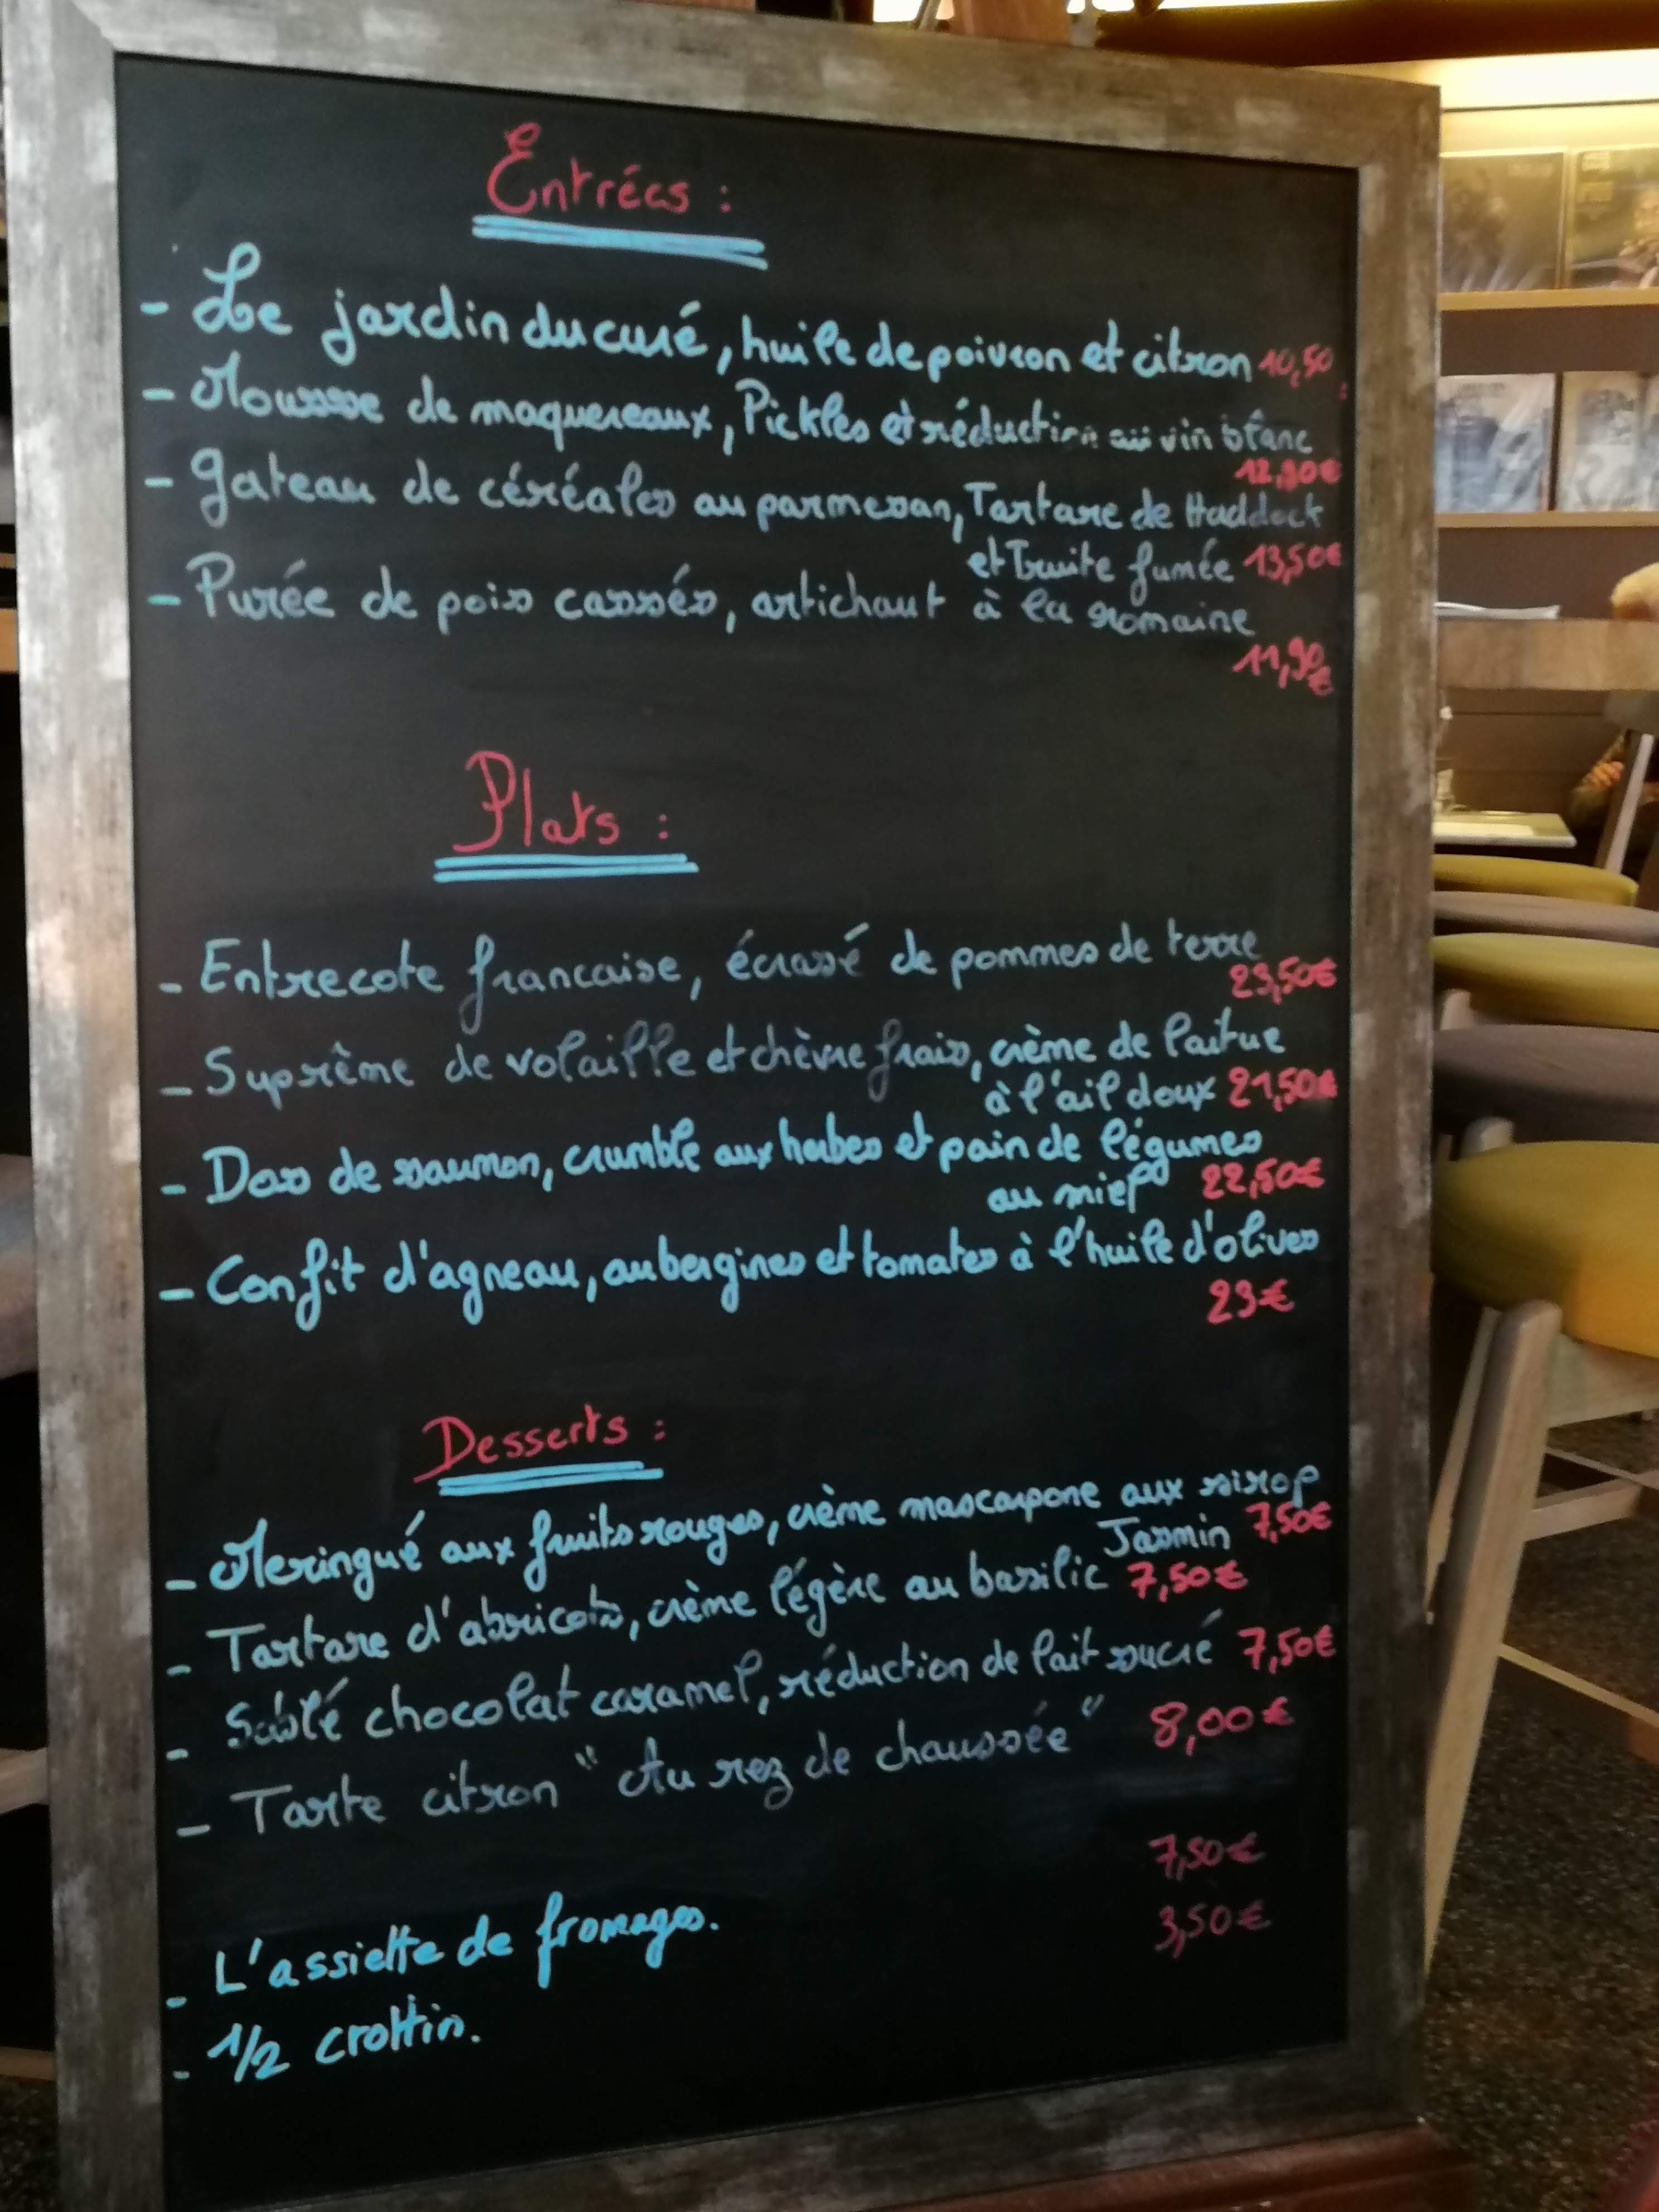 Entrées :
- Le jardin du curé, huile de poivron et citron 10,50
- Mousse de maquereaux, Pickles et réduction au vin blanc
12,90€
- gateau de céréales au parmesan, Tartare de Haddock
et Truite fumée 13,50€
- Purée de pois cassés, artichaut à la romaine
11,90€
Plats :
- Entrecote francaise, écrasé de pommes de terre
23,50€
- Suprême de volaille et chèvre frais, crème de laitue
à l'ail doux 21,50€
- Dos de saumon, crumble aux herbes et pain de légumes
au miel 22,50€
- Confit d'agneau, aubergines et tomates à l'huile d'olives
23€
Desserts :
- Meringué aux fruits rouges, crème mascarpone aux sirop
Jasmin 7,50€
- Tartare d'abricots, crème légère au basilic 7,50€
- Sablé chocolat caramel, réduction de lait sucré 7,50€
- Tarte citron "Au rez de chaussée" 8,00€
- L'assiette de fromages. 7,50€
- 1/2 crottin. 3,50€